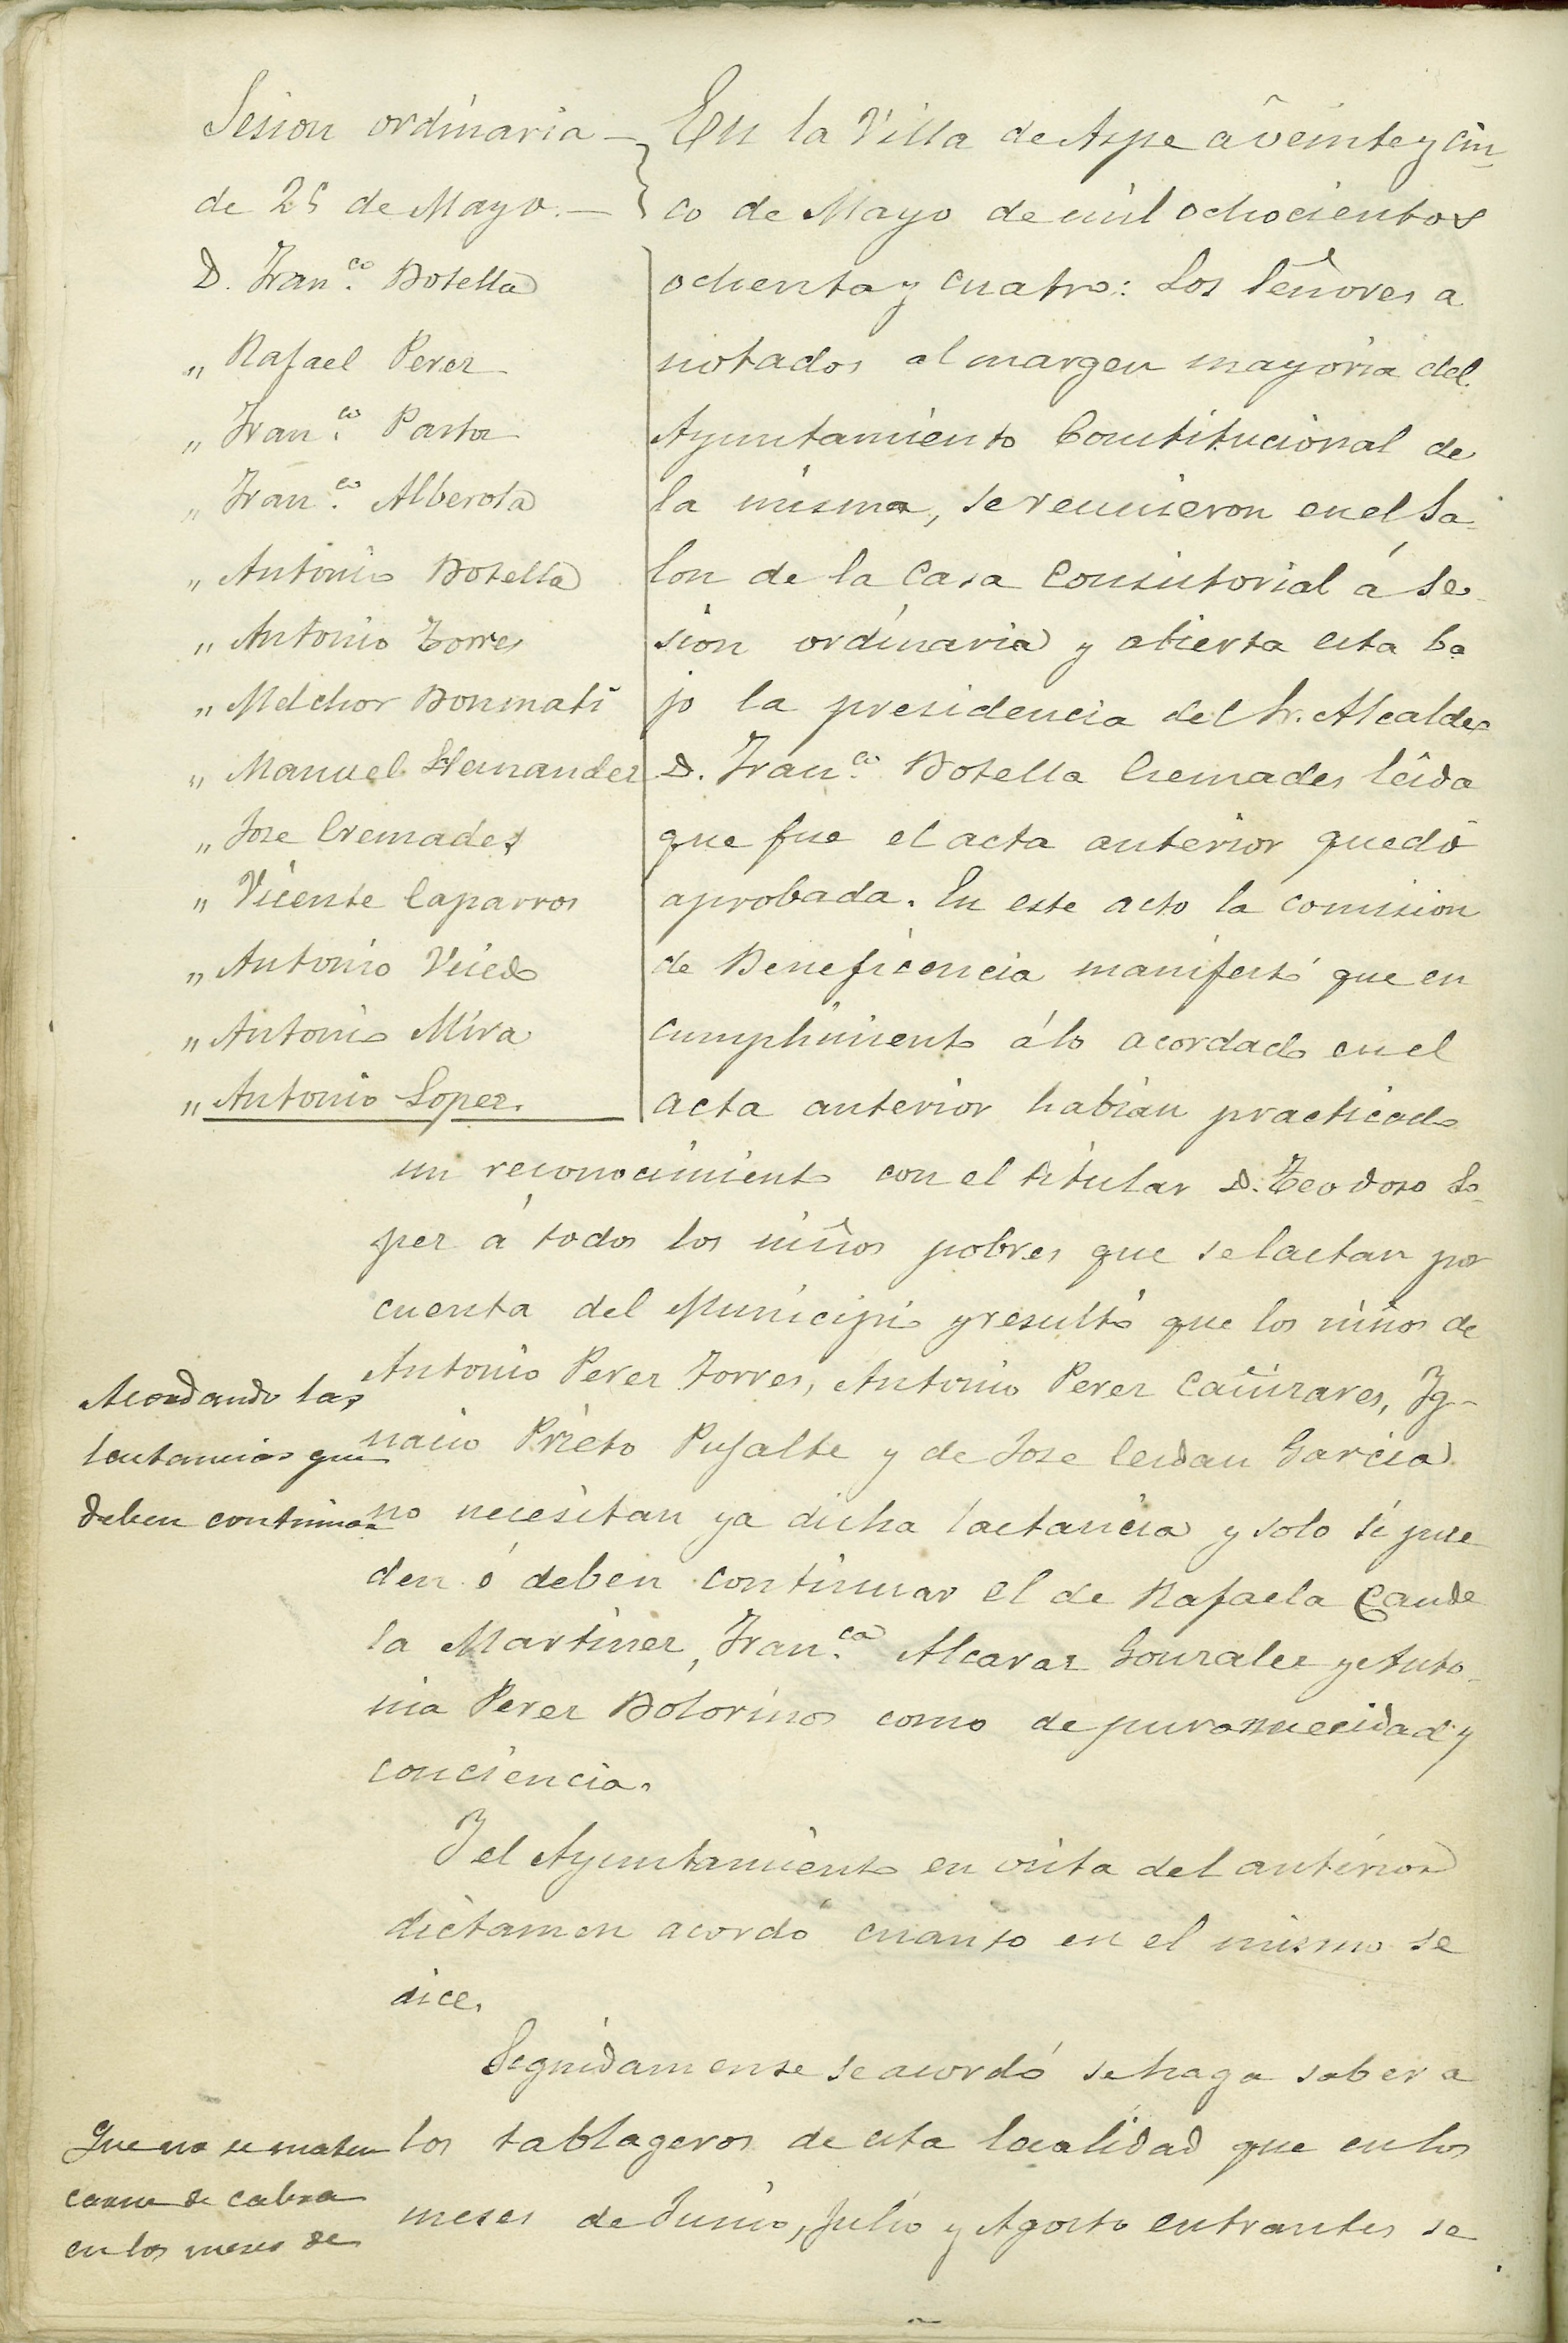 Sesion ordinaria
de 25 de Mayo.
D. Fran.co Botella
„ Rafael Perez
„ Fran.co Pastor
„ Fran.co Alberola
„ Antonio Botella
„ Antonio Torres
„ Melchor Bonmati
„ Manuel Hernandez
„ Jose Cremades
„ Vicente Caparros
„ Antonio Vicedo
„ Antonio Mira
„ Antonio Lopez.
En la Villa de Aspe a veinte y cin
co de Mayo de mil ochocientos
ochenta y cuatro: Los Señores a
notados al margen mayoria del
Ayuntamiento Constitucional de
la misma, se reunieron en el Sa
lon de la Casa Consistorial á se
sion ordinaria y abierta esta ba
jo la presidencia del Sr. Alcalde
D. Fran.co Botella Cremades leida
que fue el acta anterior quedó
aprobada. En este acto la comision
de Beneficencia manifestó que en
cumplimiento á lo acordado en el
acta anterior habian practicado
un reconocimiento con el titular D. Teodoro Lo
pez á todos los niños pobres que se lactan por
cuenta del Municipio y resultó que los niños de
Antonio Perez Torres, Antonio Perez Cañizares, Ig-
nacio Prieto Pujalte y de Jose Cerdan Garcia
no necesitan ya dicha lactancia y solo si pue
den ó deben continuar el de Rafaela Cande
la Martinez, Fran.ca Alcaraz Gonzalez y Anto
nia Perez Botorinos como de pura necesidad y
conciencia.
Acordando las
lactancias que
deben continuar
Y el Ayuntamiento en vista del anterior
dictamen acordó cuanto en el mismo se
dice.
Seguidamente se acordó se haga saber a
los tablageros de esta localidad que en los
meses de Junio, Julio y Agosto entrantes se
Que no se maten
carne de cabra
en los meses de